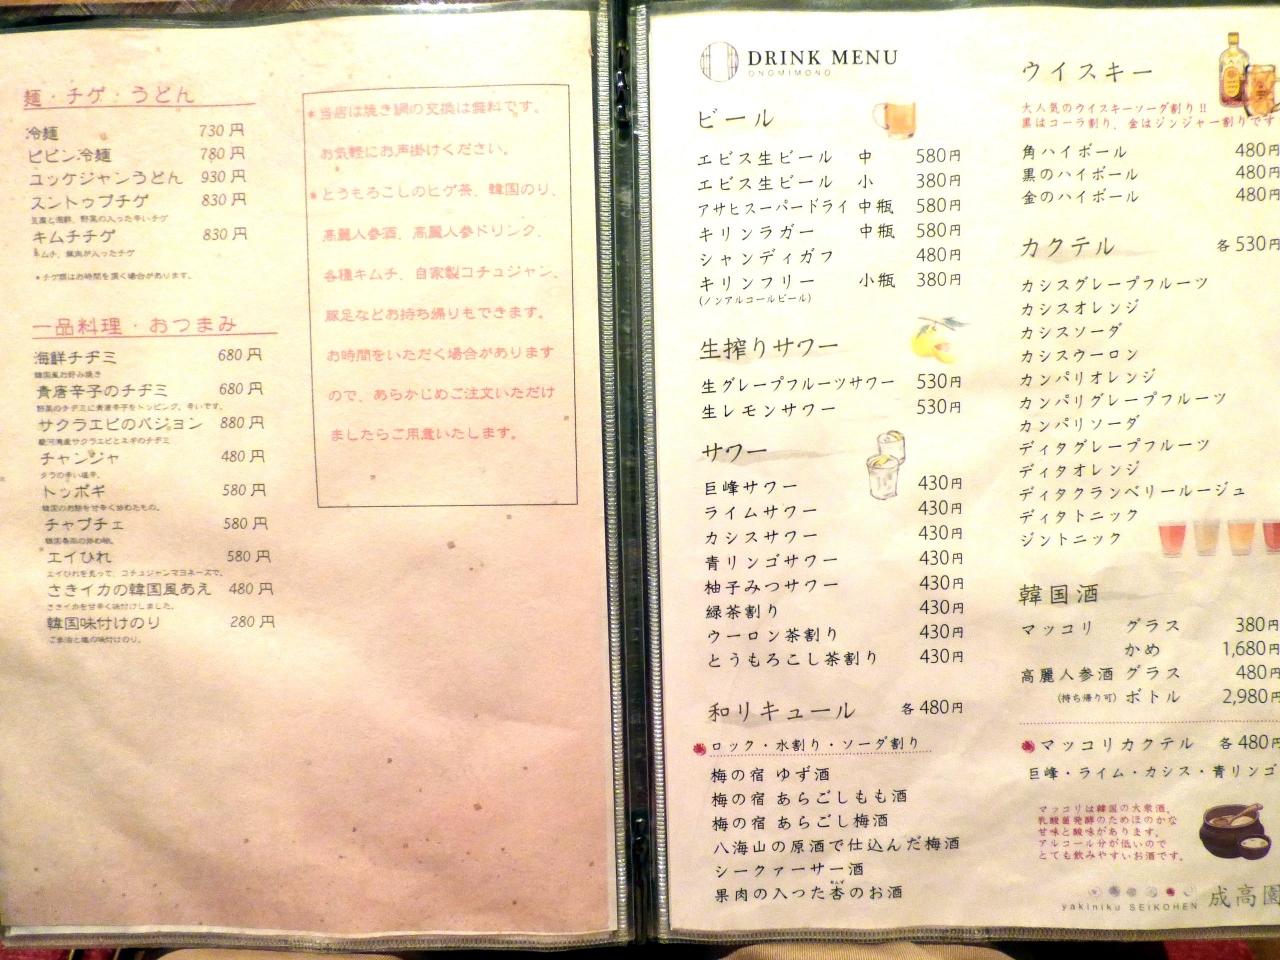 麺・チゲ・うどん
冷麺 730円
ビビン冷麺 780円
ユッケジャンうどん 930円
スントゥブチゲ 830円
豆腐と海鮮、野菜の入った辛いチゲ
キムチチゲ 830円
キムチ、豚肉が入ったチゲ
*チゲ類はお時間を頂く場合があります。
一品料理・おつまみ
海鮮チヂミ 680円
韓国風お好み焼き
青唐辛子のチヂミ 680円
野菜のチヂミに青唐辛子をトッピング。辛いです。
サクラエビのパジョン 880円
駿河湾産サクラエビとネギのチヂミ
チャンジャ 480円
タラの辛い塩辛。
トッポギ 580円
韓国のお餅を甘辛く炒めたもの。
チャプチェ 580円
韓国春雨の炒め物。
エイひれ 580円
エイひれを炙って、コチュジャンマヨネーズで。
さきイカの韓国風あえ 480円
さきイカを甘辛く味付けしました。
韓国味付けのり 280円
ごま油と塩の味付けのり。
*当店は焼き網の交換は無料です。
お気軽にお声掛けください。
*とうもろこしのヒゲ茶、韓国のり、
高麗人参酒、高麗人参ドリンク、
各種キムチ、自家製コチュジャン、
豚足などお持ち帰りもできます。
お時間をいただく場合があります
ので、あらかじめご注文いただけ
ましたらご用意いたします。
DRINK MENU
ONOMIMONO
ビール
エビス生ビール 中 580円
エビス生ビール 小 380円
アサヒスーパードライ 中瓶 580円
キリンラガー 中瓶 580円
シャンディガフ 480円
キリンフリー 小瓶 380円
(ノンアルコールビール)
生搾りサワー
生グレープフルーツサワー 530円
生レモンサワー 530円
サワー
巨峰サワー 430円
ライムサワー 430円
カシスサワー 430円
青リンゴサワー 430円
柚子みつサワー 430円
緑茶割り 430円
ウーロン茶割り 430円
とうもろこし茶割り 430円
和リキュール 各480円
ロック・水割り・ソーダ割り
梅の宿 ゆず酒
梅の宿 あらごしもも酒
梅の宿 あらごし梅酒
八海山の原酒で仕込んだ梅酒
シークァーサー酒
果肉の入った杏のお酒
あんず
ウイスキー
大人気のウイスキーソーダ割り!!
黒はコーラ割り、金はジンジャー割りです
角ハイボール 480円
黒のハイボール 480円
金のハイボール 480円
カクテル 各530円
カシスグレープフルーツ
カシスオレンジ
カシスソーダ
カシスウーロン
カンパリオレンジ
カンパリグレープフルーツ
カンパリソーダ
ディタグレープフルーツ
ディタオレンジ
ディタクランベリールージュ
ディタトニック
ジントニック
韓国酒
マッコリ グラス 380円
かめ 1,680円
高麗人参酒 グラス 480円
(持ち帰り可) ボトル 2,980円
マッコリカクテル 各480円
巨峰・ライム・カシス・青リンゴ
マッコリは韓国の大衆酒。
乳酸菌発酵のためほのかな
甘味と酸味があります。
アルコール分が低いので
とても飲みやすいお酒です。
yakiniku SEIKOHEN 成高園